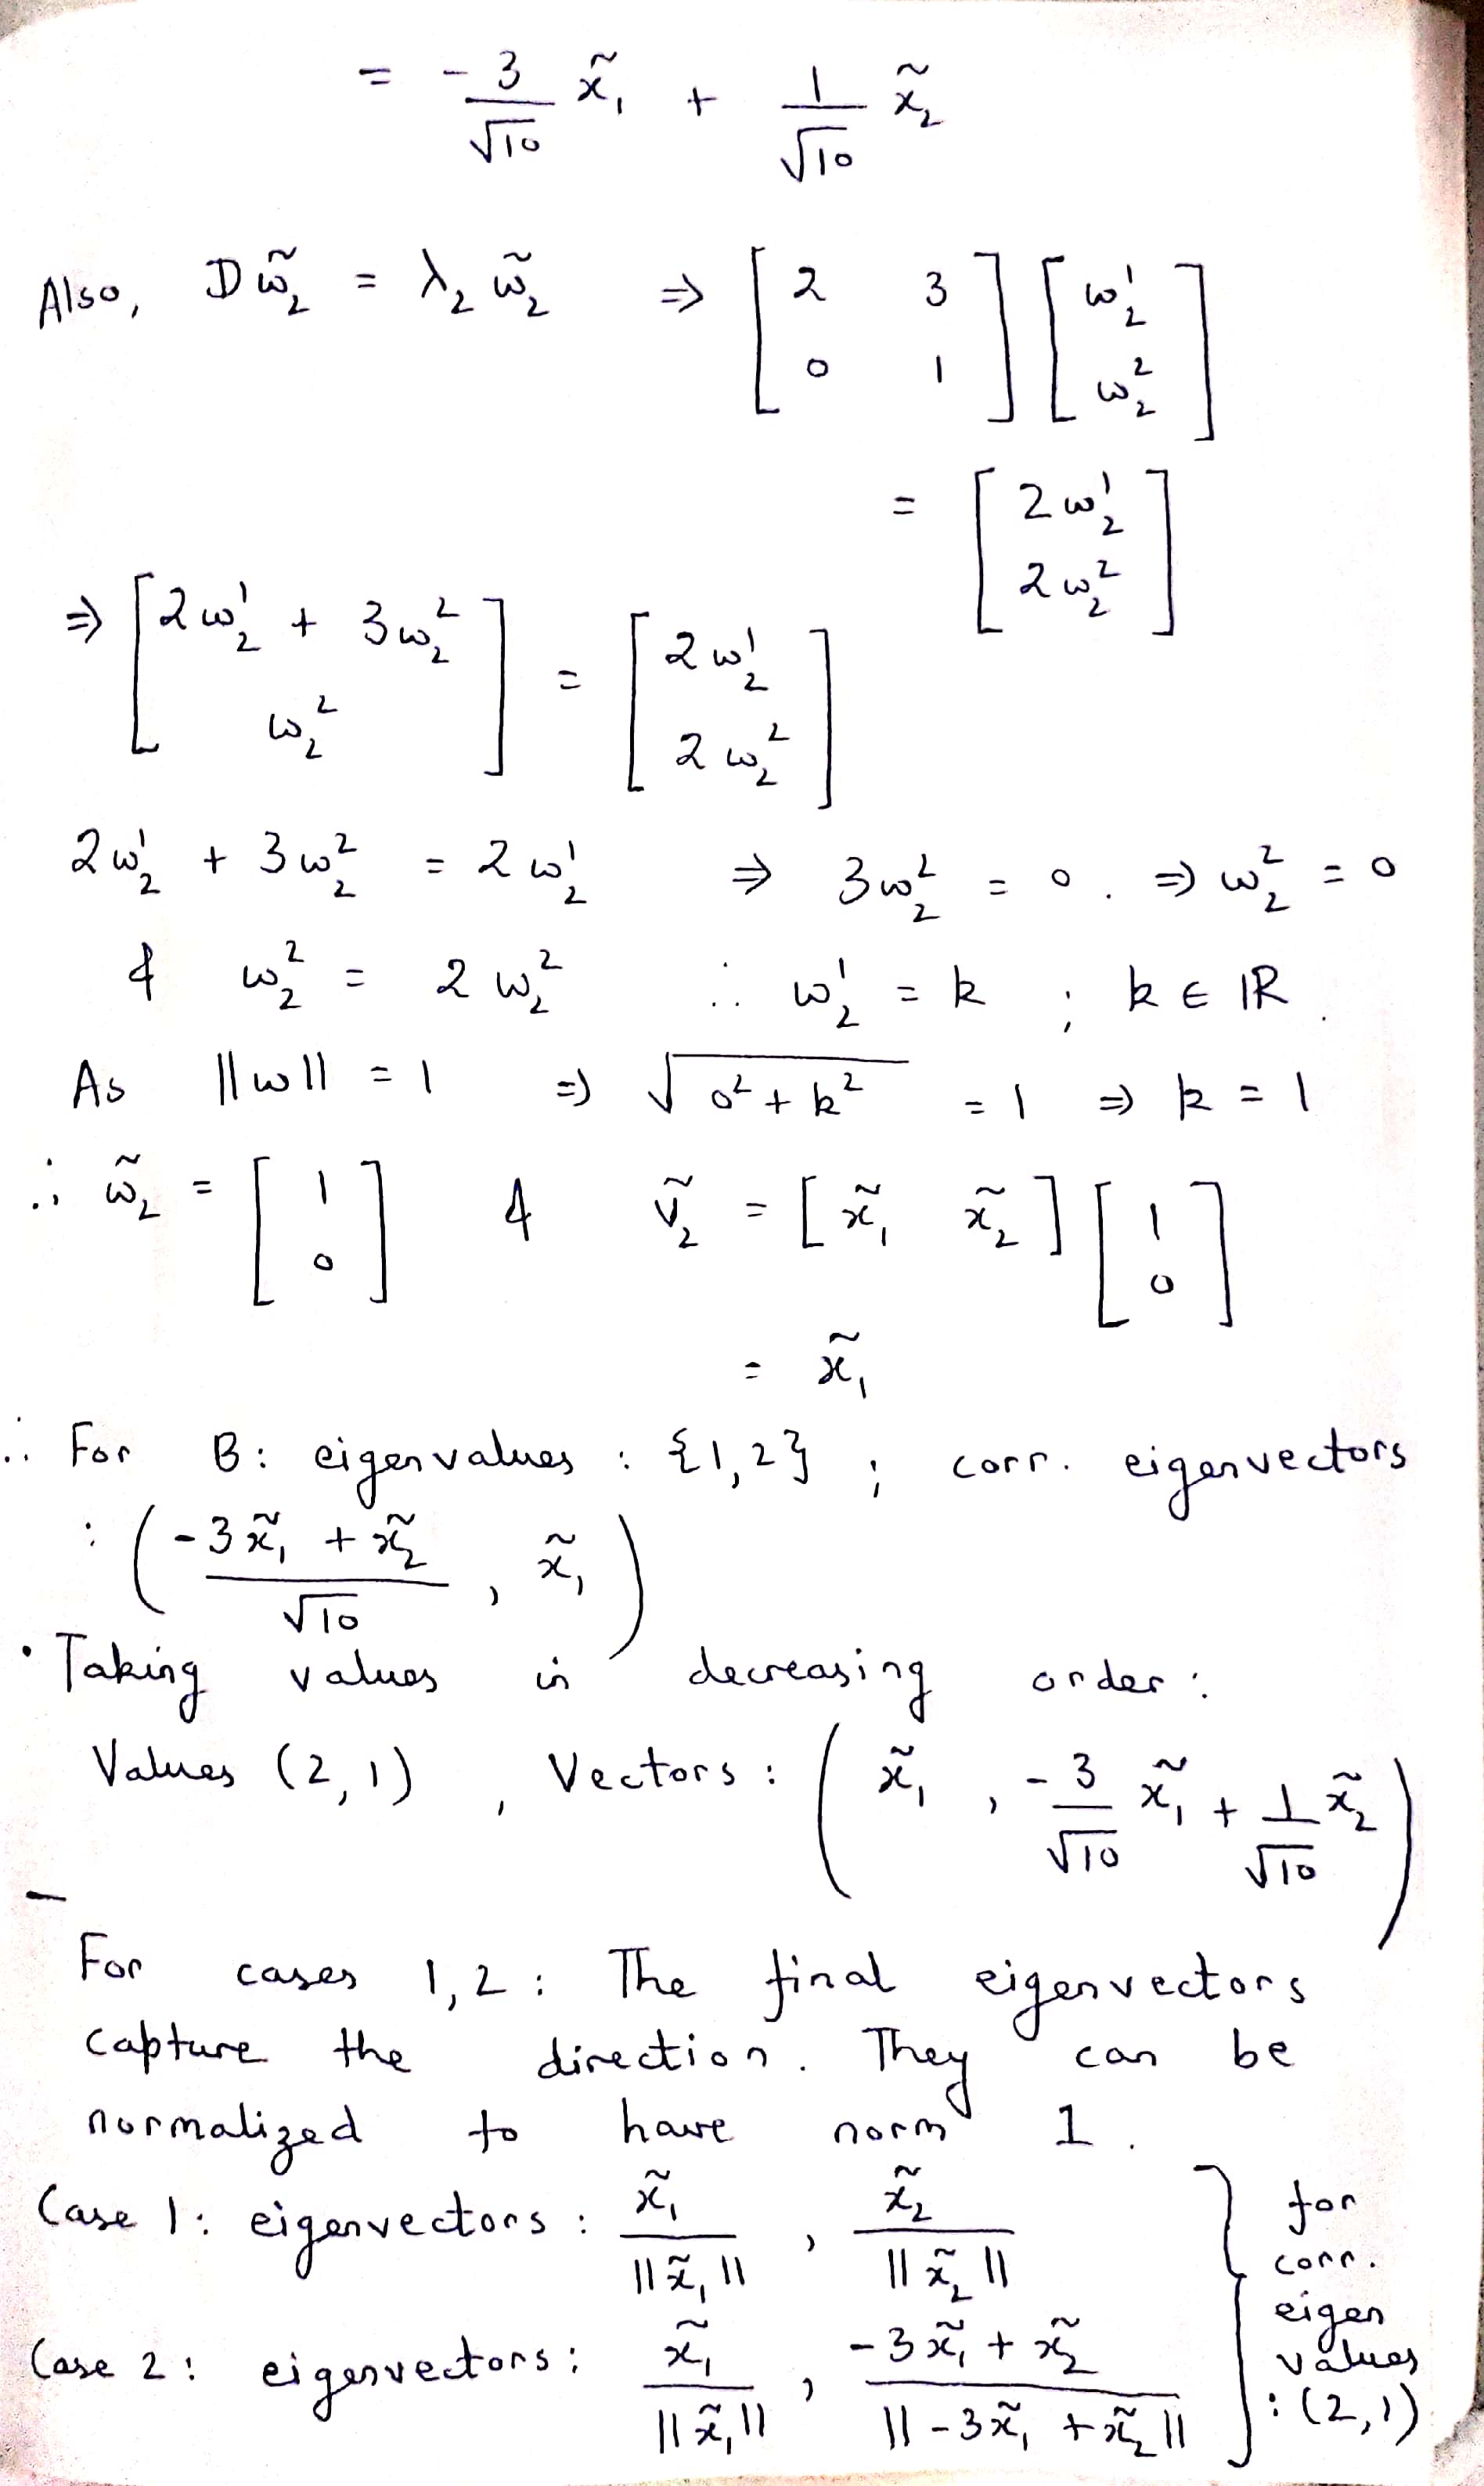 = -3/√10 x̃₁ + 1/√10 x̃₂
Also, D ω̃₂ = λ₂ ω̃₂ ⇒ [2 3; 0 1] [ω₂¹; ω₂²]
= [2ω₂¹; 2ω₂²]
⇒ [2ω₂¹ + 3ω₂²; ω₂²] = [2ω₂¹; 2ω₂²]
2ω₂¹ + 3ω₂² = 2ω₂¹ ⇒ 3ω₂² = 0. ⇒ ω₂² = 0
& ω₂² = 2ω₂² ∴ ω₂¹ = k ; k ∈ ℝ.
As ||ω|| = 1 ⇒ √(0² + k²) = 1 ⇒ k = 1
∴ ω̃₂ = [1; 0] & ṽ₂ = [x̃₁ x̃₂] [1; 0]
= x̃₁
∴ For B: eigenvalues : {1,2} ; corr. eigenvectors
: ((-3x̃₁ + x̃₂)/√10 , x̃₁)
• Taking values in decreasing order :
Values (2,1) , Vectors : (x̃₁ , -3/√10 x̃₁ + 1/√10 x̃₂)
—
For cases 1,2 : The final eigenvectors
capture the direction. They can be
normalized to have norm 1.
Case 1: eigenvectors : x̃₁/||x̃₁|| , x̃₂/||x̃₂||
Case 2 : eigenvectors : x̃₁/||x̃₁|| , (-3x̃₁ + x̃₂)/||-3x̃₁ + x̃₂||
} for
corr.
eigen
values
: (2,1)